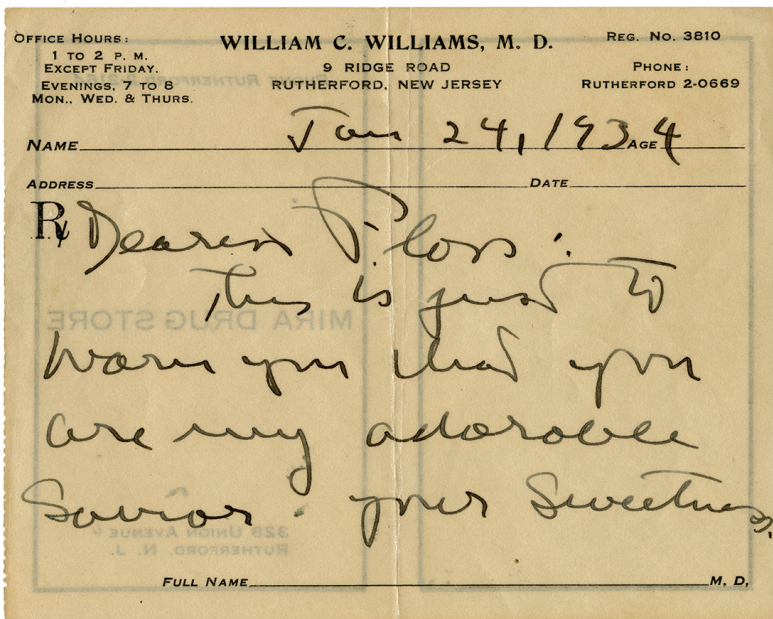 OFFICE HOURS:
1 TO 2 P. M.
EXCEPT FRIDAY.
EVENINGS, 7 TO 8
MON., WED. & THURS.
WILLIAM C. WILLIAMS, M. D.
9 RIDGE ROAD
RUTHERFORD, NEW JERSEY
REG. NO. 3810
PHONE:
RUTHERFORD 2-0669
NAME Jan 24, 1934 AGE
ADDRESS DATE
Rx Dearest Floss:
This is just to
warn you that you
are my adorable
Savior. your Sweetness,
MIRA DRUG STORE
328 UNION AVENUE
RUTHERFORD, N. J.
FULL NAME M. D.